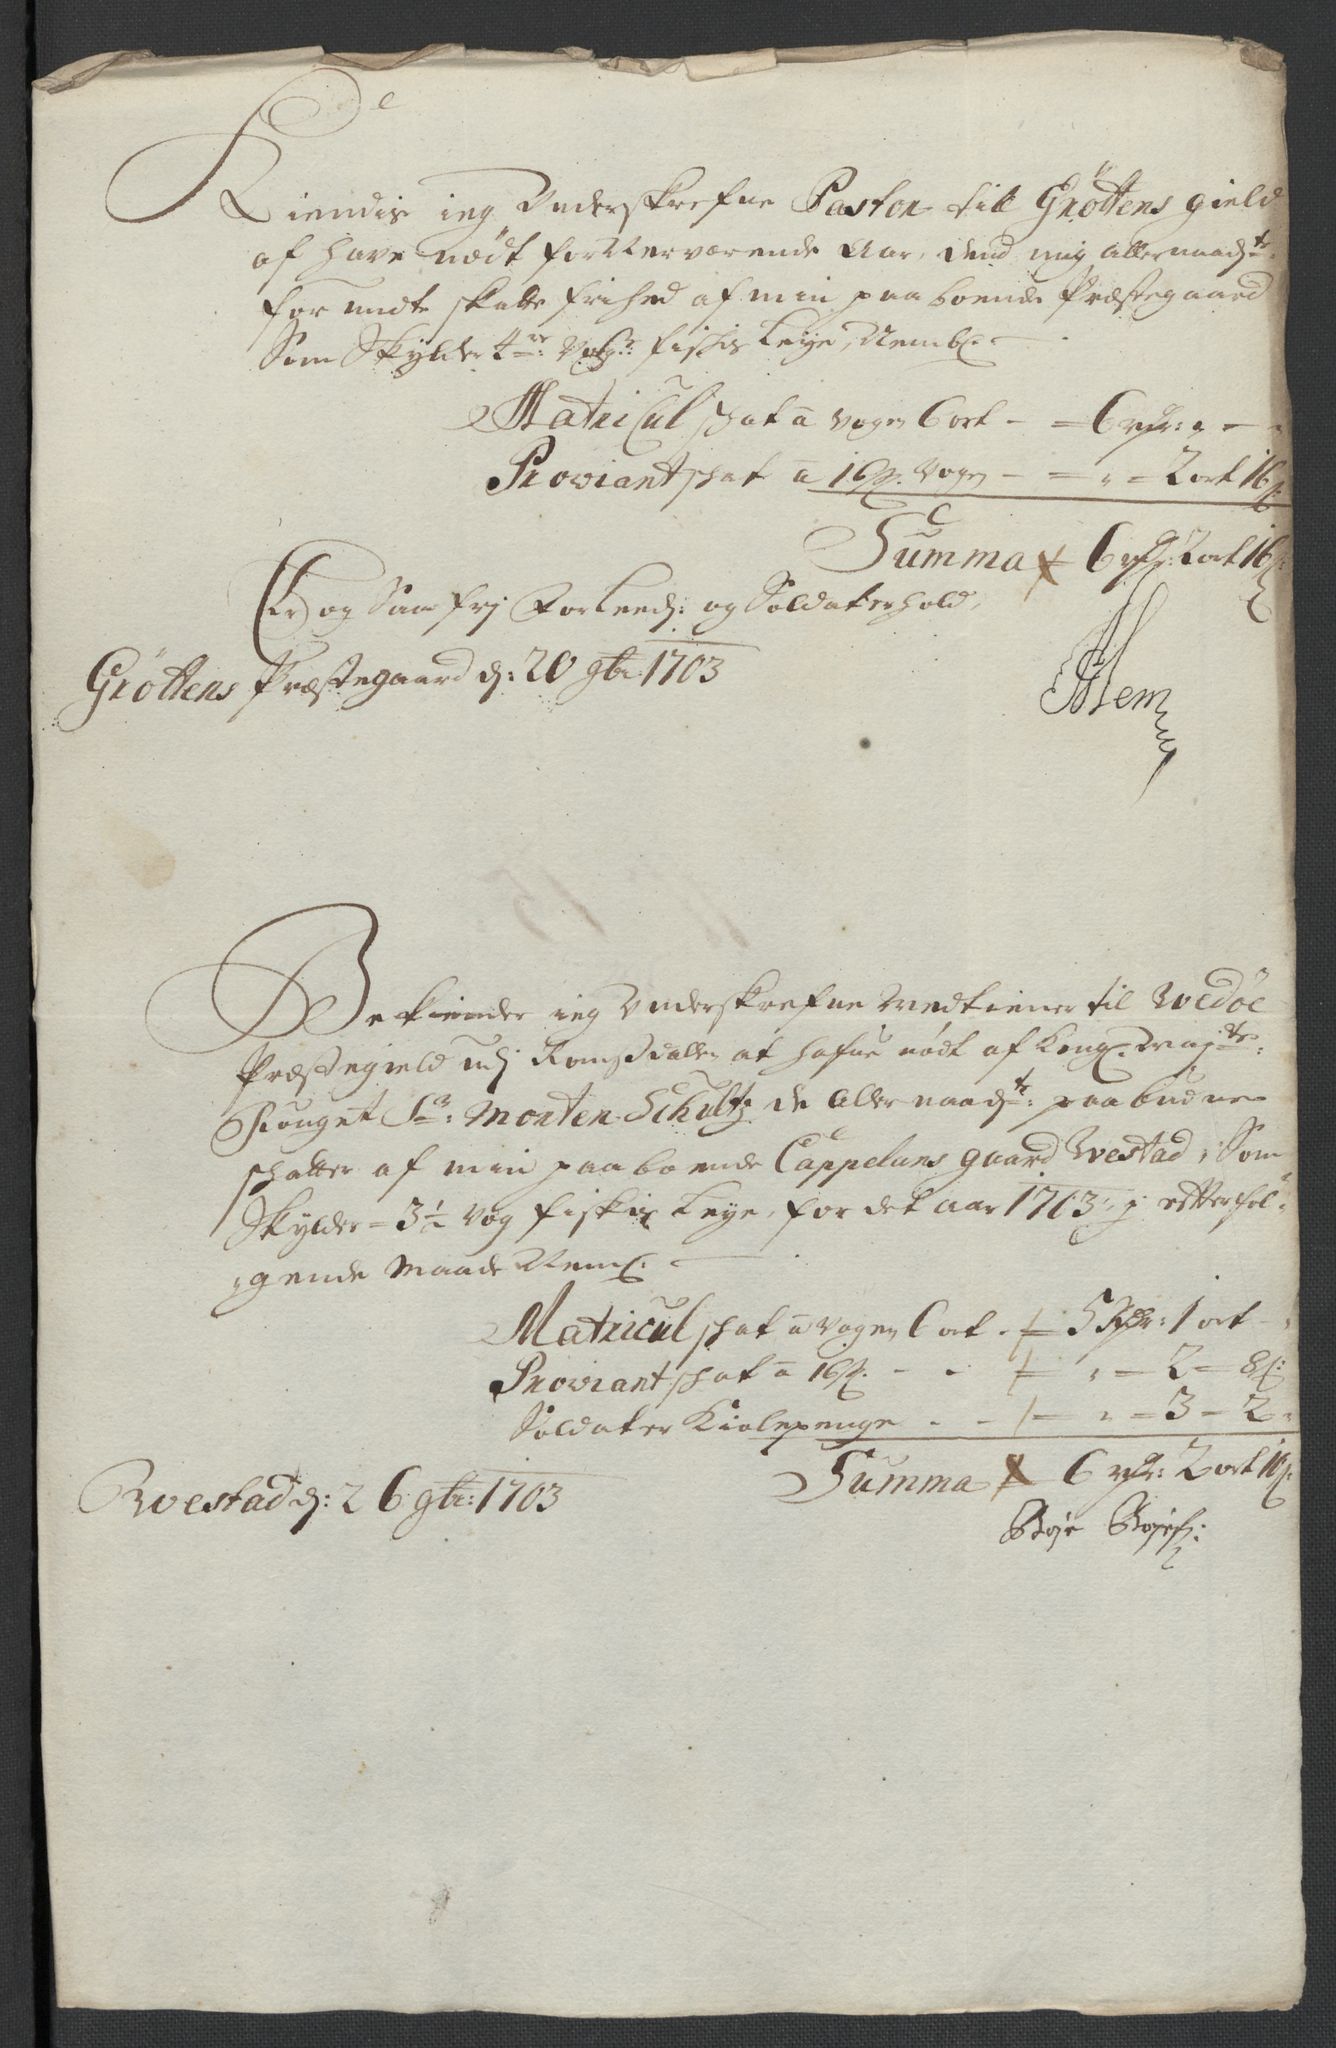 Kiendis ieg Underskrefne Pastor till Gröttens gield
af have nødt for Nerværende Aar, dend mig allernaadste
for undte skatte frihed af min paaboende Præstegaard
Som Skylder 4re Voger fiskis Leye, Nembl.
Matricul skat a vogen 6 ort - = 6 rdr: „ -
Proviant skat a 16 s. Vogen - = „ = 2 ort 16 s:
Summa 6 rdr: 2 ort 16 s:
Er og Saa frj og Soldaterhold,
Gröttens Præstegaard d: 20 9br: 1703
Bekiender ieg Underskrefne Medtiener til Wedöe
Præstegield udj Romsdallen at hafue nødt af Kongl. Majts:
Fouget Sr: Morten Schultz de Allernaadste: paabudne
skatter af min paaboende Cappelans gaard Westad, Som
Skylder = 3 1/2 vog fiskis Leye, for det aar 1703, j effterføl-
gende Maade Neml:
Matricul skat a vogen 6 ort - = 5 Rdr: 1 ort -
Proviant skat a 16 s. - - = „ = 2 = 8 s:
Soldater Kiolepenge - - = „ = 3 = 2 „
Summa 6 rdr: 2 ort 10 s:
Westad d: 26 9br: 1703